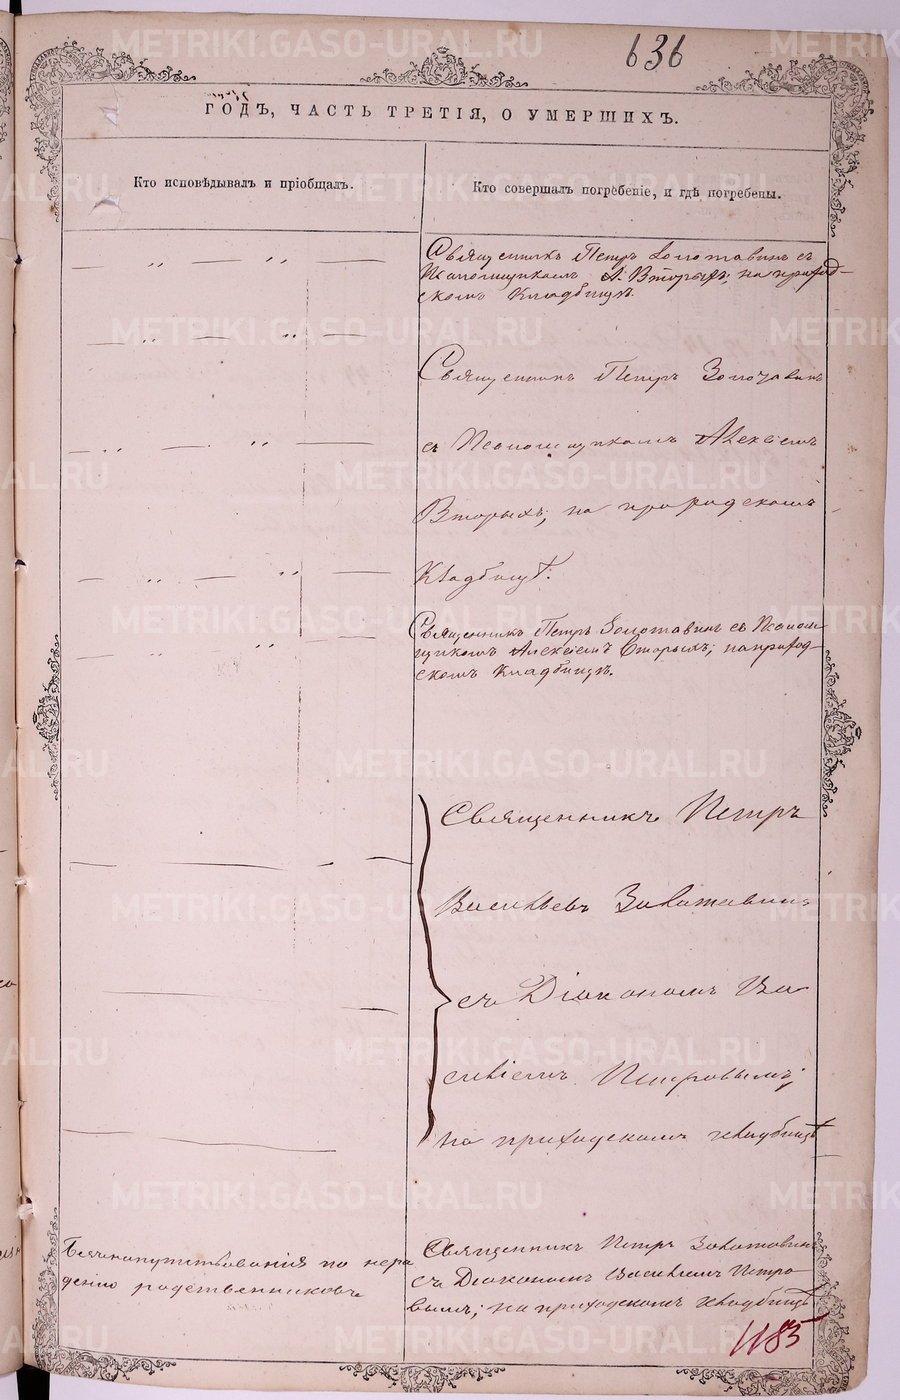 636
ГОДЪ, ЧАСТЬ ТРЕТІЯ, О УМЕРШИХЪ.
Кто исповѣдывалъ и пріобщалъ.
Кто совершалъ погребеніе, и гдѣ погребены.
Священникъ Петръ Золотавинъ съ
Псаломщикомъ А. Вторыхъ, на приход-
скомъ Кладбищѣ.
Священникъ Петръ Золотавинъ
съ Псаломщикомъ Алексѣемъ
Вторыхъ, на приходскомъ
Кладбищѣ.
Священникъ Петръ Золотавинъ съ Псалом-
щикомъ Алексіемъ Вторыхъ; на приход-
скомъ Кладбищѣ.
Священникъ Петръ
Васильевъ Золотавинъ
съ Діакономъ Ва
силіемъ Петровымъ;
на приходскомъ кладбищѣ
Безъ напутствованія по нера
дению родственниковъ
Священникъ Петръ Золотавинъ
съ Діакономъ Василіемъ Петро
вымъ; на приходскомъ кладбищѣ
1185
METRIKI.GASO-URAL.RU